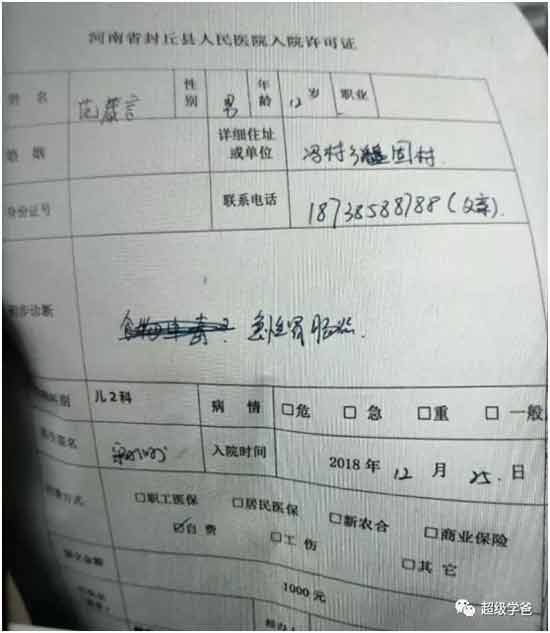 河南省封丘县人民医院入院许可证
姓 名 范 言 性别 男 年龄 12岁 职业
婚 姻 详细住址或单位 冯村乡 固村
身份证号 联系电话 18738588788(父亲)
初步诊断 食物中毒? 急性胃肠炎.
科别 儿2科 病 情 □危 □急 □重 □一般
医生签名 入院时间 2018年12月25日
方式 □职工医保 □居民医保 □新农合 □商业保险
☑自费 □工伤 □其它
金额 1000元
超级学爸